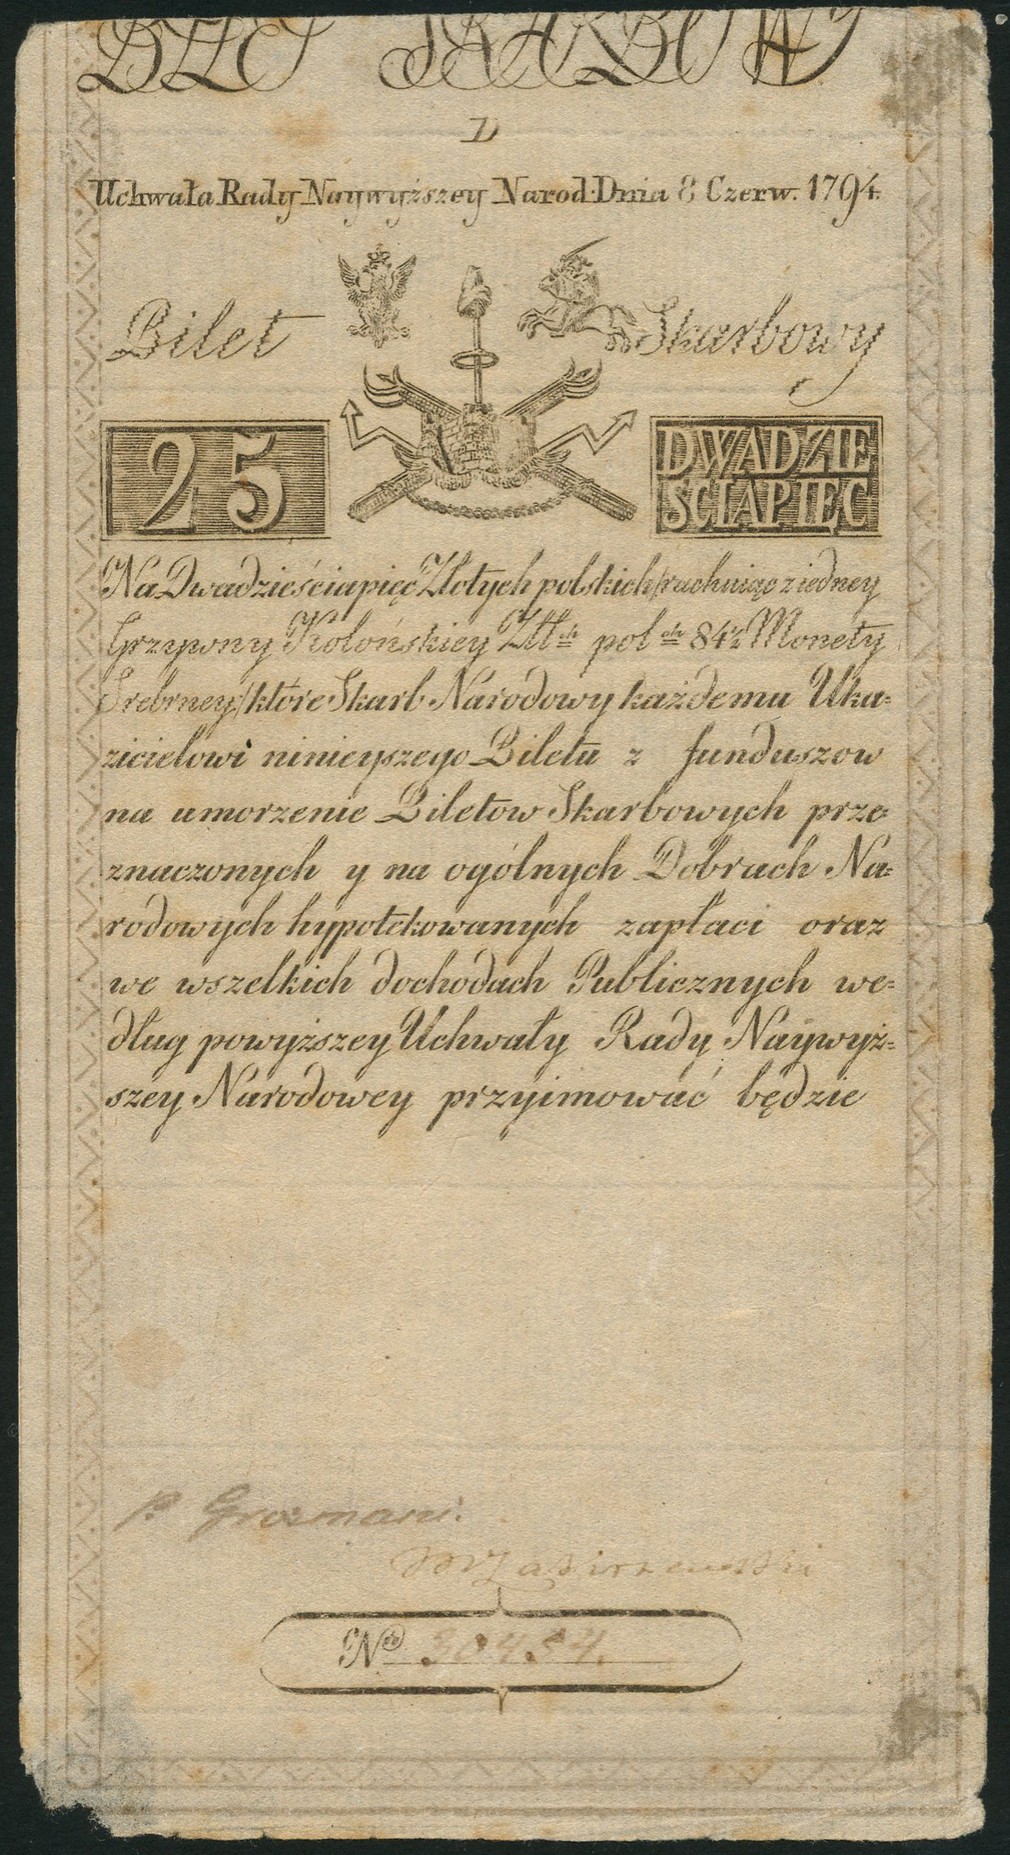 BILET SKARBOWY
D
Uchwała Rady Naywyższey Narod: Dnia 8 Czerw. 1794.
Bilet Skarbowy
25 DWADZIE
ŚCIAPIĘĆ
Na Dwadzieściapięć Złotych polskich /rachuiąc z iedney
Grzywny Kolońskiey Złł:ch pol:ch 84½ Monety
Srebrney/ które Skarb Narodowy każdemu Uka=
zicielowi ninieyszego Biletu z funduszow
na umorzenie Biletow Skarbowych prze=
znaczonych y na ogólnych Dobrach Na=
rodowych hypotekowanych zapłaci oraz
we wszelkich dochodach Publicznych we=
dług powyższey Uchwały Rady Naywyż=
szey Narodowey przyimować będzie
P. Grosmani.
No 30454.